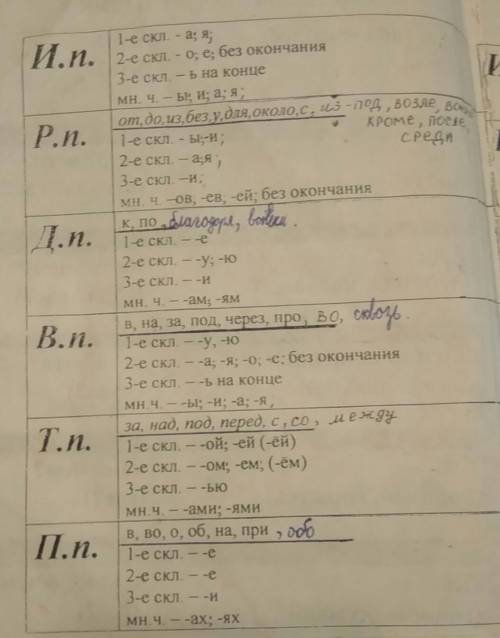 И.п.
1-е скл. - а; я;
2-е скл. - о; е; без окончания
3-е скл. – ь на конце
мн. ч. – ы; и; а; я;
Р.п.
от,до,из,без,у,для,около,с, из-под, возле,
кроме, после,
среди
1-е скл. - ы;-и;
2-е скл. – а;я;
3-е скл. –и;
мн. ч. –ов, -ев, -ей; без окончания
Д.п.
к, по, благодаря,
1-е скл. – -е
2-е скл. – -у; -ю
3-е скл. – -и
мн. ч. – -ам; -ям
В.п.
в, на, за, под, через, про, во, сквозь.
1-е скл. – -у, -ю
2-е скл. – -а; -я; -о; -с; без окончания
3-е скл. – -ь на конце
мн.ч. – -ы; -и; -а; -я,
Т.п.
за, над, под, перед, с, со, между
1-е скл. – -ой; -ей (-ёй)
2-е скл. – -ом; -ем; (-ём)
3-е скл. – -ью
мн.ч. – -ами; -ями
П.п.
в, во, о, об, на, при, обо
1-е скл. – -е
2-е скл. – -е
3-е скл. – -и
мн.ч. – -ах; -ях